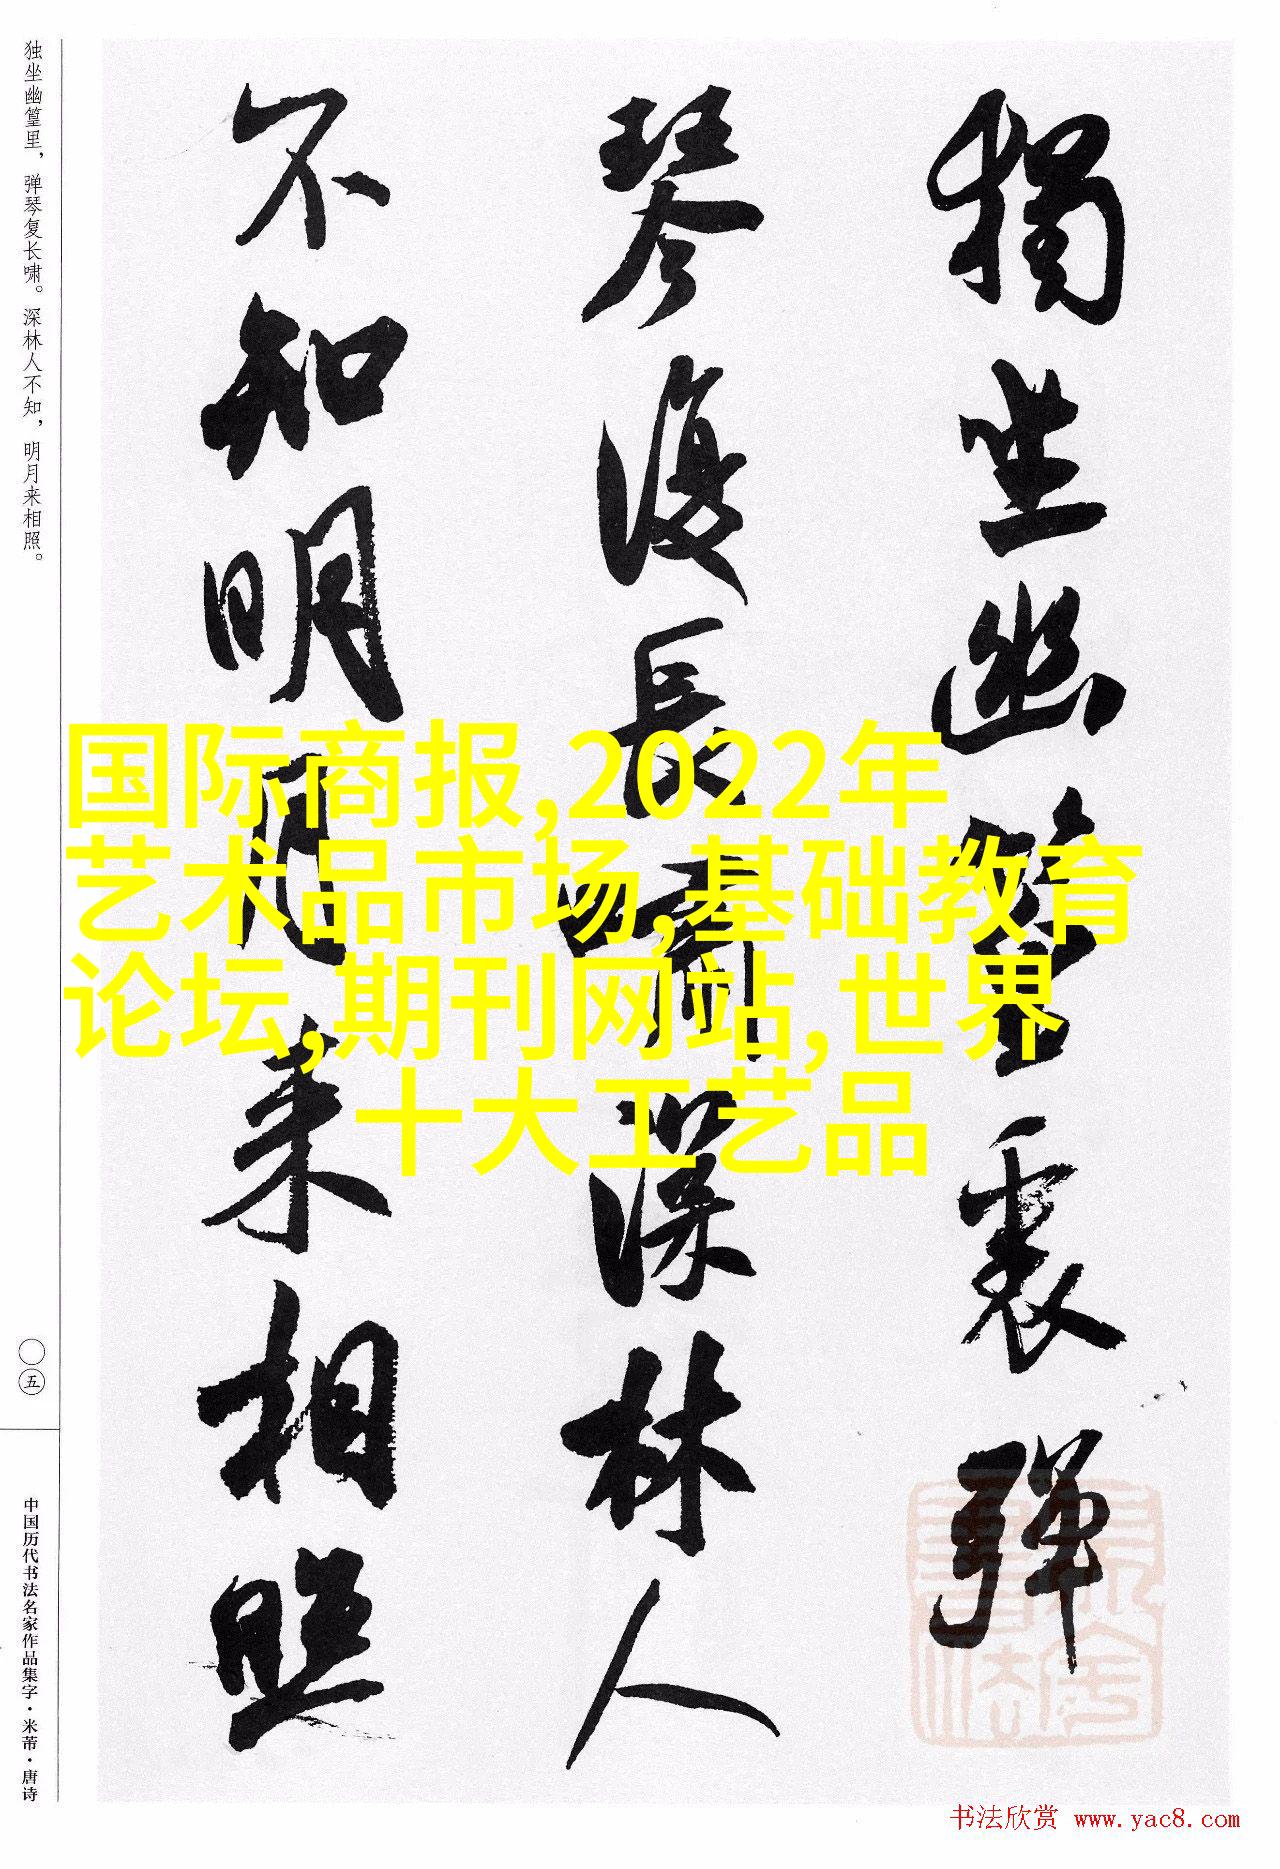 獨坐幽篁裏彈
琴復長嘯深林人
不知明月来相照
独坐幽篁里，弹琴复长啸。深林人不知，明月来相照。
〇五
中国历代书法名家作品集字·米芾·唐诗
国际商报,2022年
艺术品市场,基础教育
论坛,期刊网站,世界
十大工艺品
书法欣赏 www.yac8.com